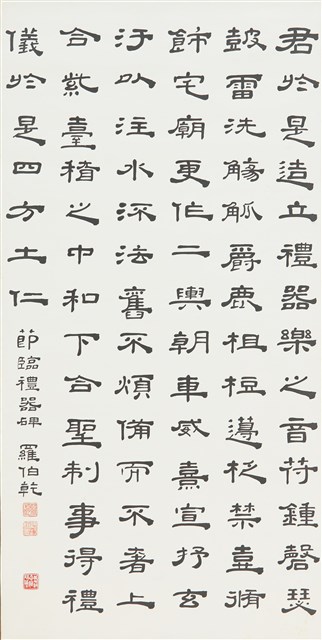 君於是造立禮器樂之音苻鍾磬瑟
鼓雷洗觴觚爵鹿柤梪籩柉禁壺脩
飾宅廟更作二輿朝車威熹宣抒玄
汙以注水流法舊不煩備而不奢上
合紫臺稽之中和下合聖制事得禮
儀於是四方土仁
節臨禮器碑 羅伯乾